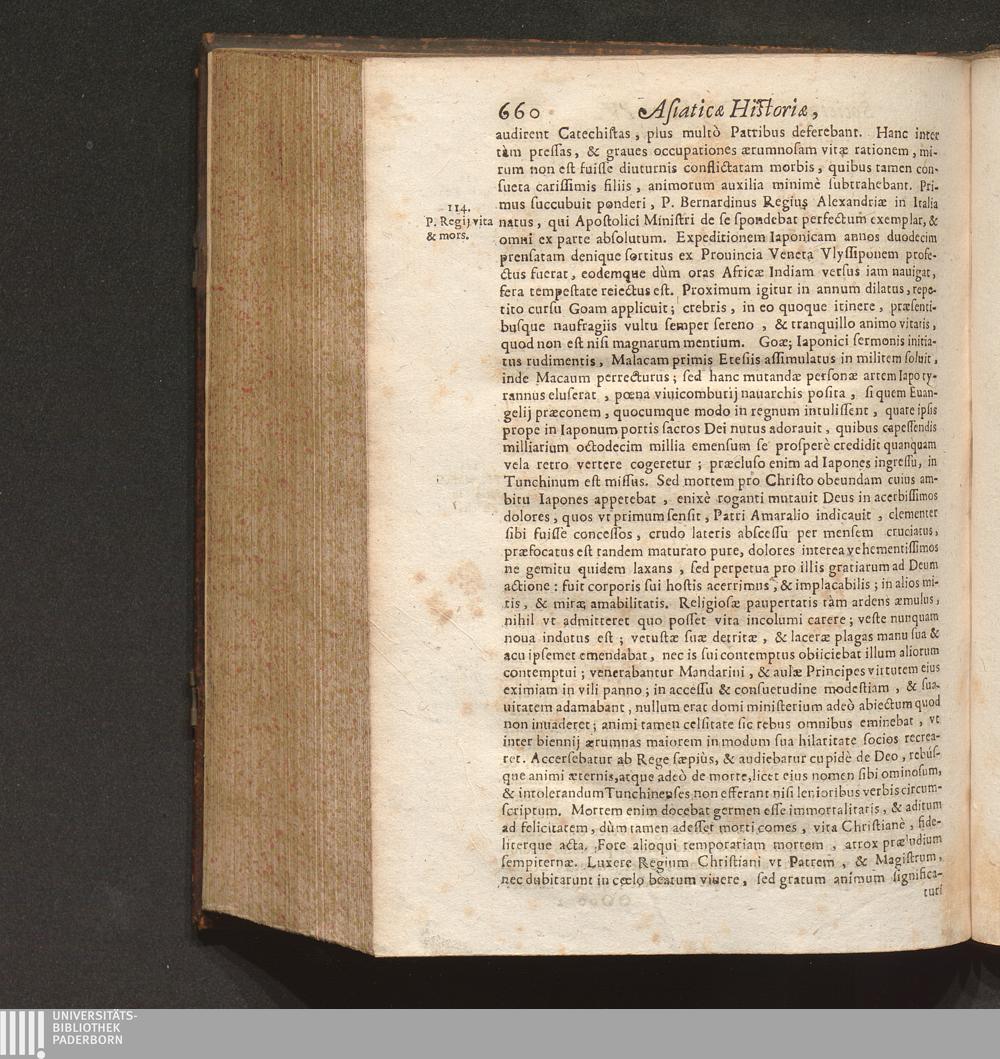 660 Asiaticæ Historiæ,
audirent Catechistas, plus multò Patribus deferebant. Hanc inter
tàm pressas, & graues occupationes ærumnosam vitæ rationem, mi-
rum non est fuisse diuturnis conflictatam morbis, quibus tamen con-
sueta carissimis filiis, animorum auxilia minimè subtrahebant. Pri-
mus succubuit ponderi, P. Bernardinus Regius Alexandriæ in Italia
114.
P. Regij vita
& mors.
natus, qui Apostolici Ministri de se spondebat perfectum exemplar, &
omni ex parte absolutum. Expeditionem Iaponicam annos duodecim
prensatam denique sortitus ex Prouincia Veneta Vlyssiponem profe-
ctus fuerat, eodemque dùm oras Africæ Indiam versus iam nauigat,
fera tempestate reiectus est. Proximum igitur in annum dilatus, repe-
tito cursu Goam applicuit; crebris, in eo quoque itinere, præsenti-
busque naufragiis vultu semper sereno, & tranquillo animo vitatis,
quod non est nisi magnarum mentium. Goæ; Iaponici sermonis initia-
tus rudimentis, Malacam primis Etesiis assimulatus in militem soluit,
inde Macaum perrecturus; sed hanc mutandæ personæ artem Iapo ty-
rannus eluserat, pœna viuicomburij nauarchis posita, si quem Euan-
gelij præconem, quocumque modo in regnum intulissent, quare ipsis
prope in Iaponum portis sacros Dei nutus adorauit, quibus capessendis
milliarium octodecim millia emensum se prosperè credidit quanquam
vela retro vertere cogeretur; præcluso enim ad Iapones ingressu, in
Tunchinum est missus. Sed mortem pro Christo obeundam cuius am-
bitu Iapones appetebat, enixè roganti mutauit Deus in acerbissimos
dolores, quos vt primum sensit, Patri Amaralio indicauit, clementer
sibi fuisse concessos, crudo lateris abscessu per mensem cruciatus,
præfocatus est tandem maturato pure, dolores interea vehementissimos
ne gemitu quidem laxans, sed perpetua pro illis gratiarum ad Deum
actione: fuit corporis sui hostis acerrimus, & implacabilis; in alios mi-
tis, & miræ amabilitatis. Religiosæ paupertatis tàm ardens æmulus,
nihil vt admitteret quo posset vita incolumi carere; veste nunquam
noua indutus est; vetustæ suæ detritæ, & laceræ plagas manu sua &
acu ipsemet emendabat, nec is sui contemptus obiiciebat illum aliorum
contemptui; venerabantur Mandarini, & aulæ Principes virtutem eius
eximiam in vili panno; in accessu & consuetudine modestiam, & sua-
uitatem adamabant, nullum erat domi ministerium adeò abiectum quod
non inuaderet; animi tamen celsitate sic rebus omnibus eminebat, vt
inter biennij ærumnas maiorem in modum sua hilaritate socios recrea-
ret. Accersebatur ab Rege sæpiùs, & audiebatur cupidè de Deo, rebus-
que animi æternis, atque adeò de morte, licet eius nomen sibi ominosum,
& intolerandum Tunchinenses non efferant nisi lenioribus verbis circum-
scriptum. Mortem enim docebat germen esse immortalitatis, & aditum
ad felicitatem, dùm tamen adesset morti comes, vita Christianè, fide-
literque acta. Fore alioqui temporariam mortem, atrox præludium
sempiternæ. Luxere Regium Christiani vt Patrem, & Magistrum,
nec dubitarunt in cœlo beatum viuere, sed gratum animum significa-
turi
UNIVERSITÄTS-
BIBLIOTHEK
PADERBORN